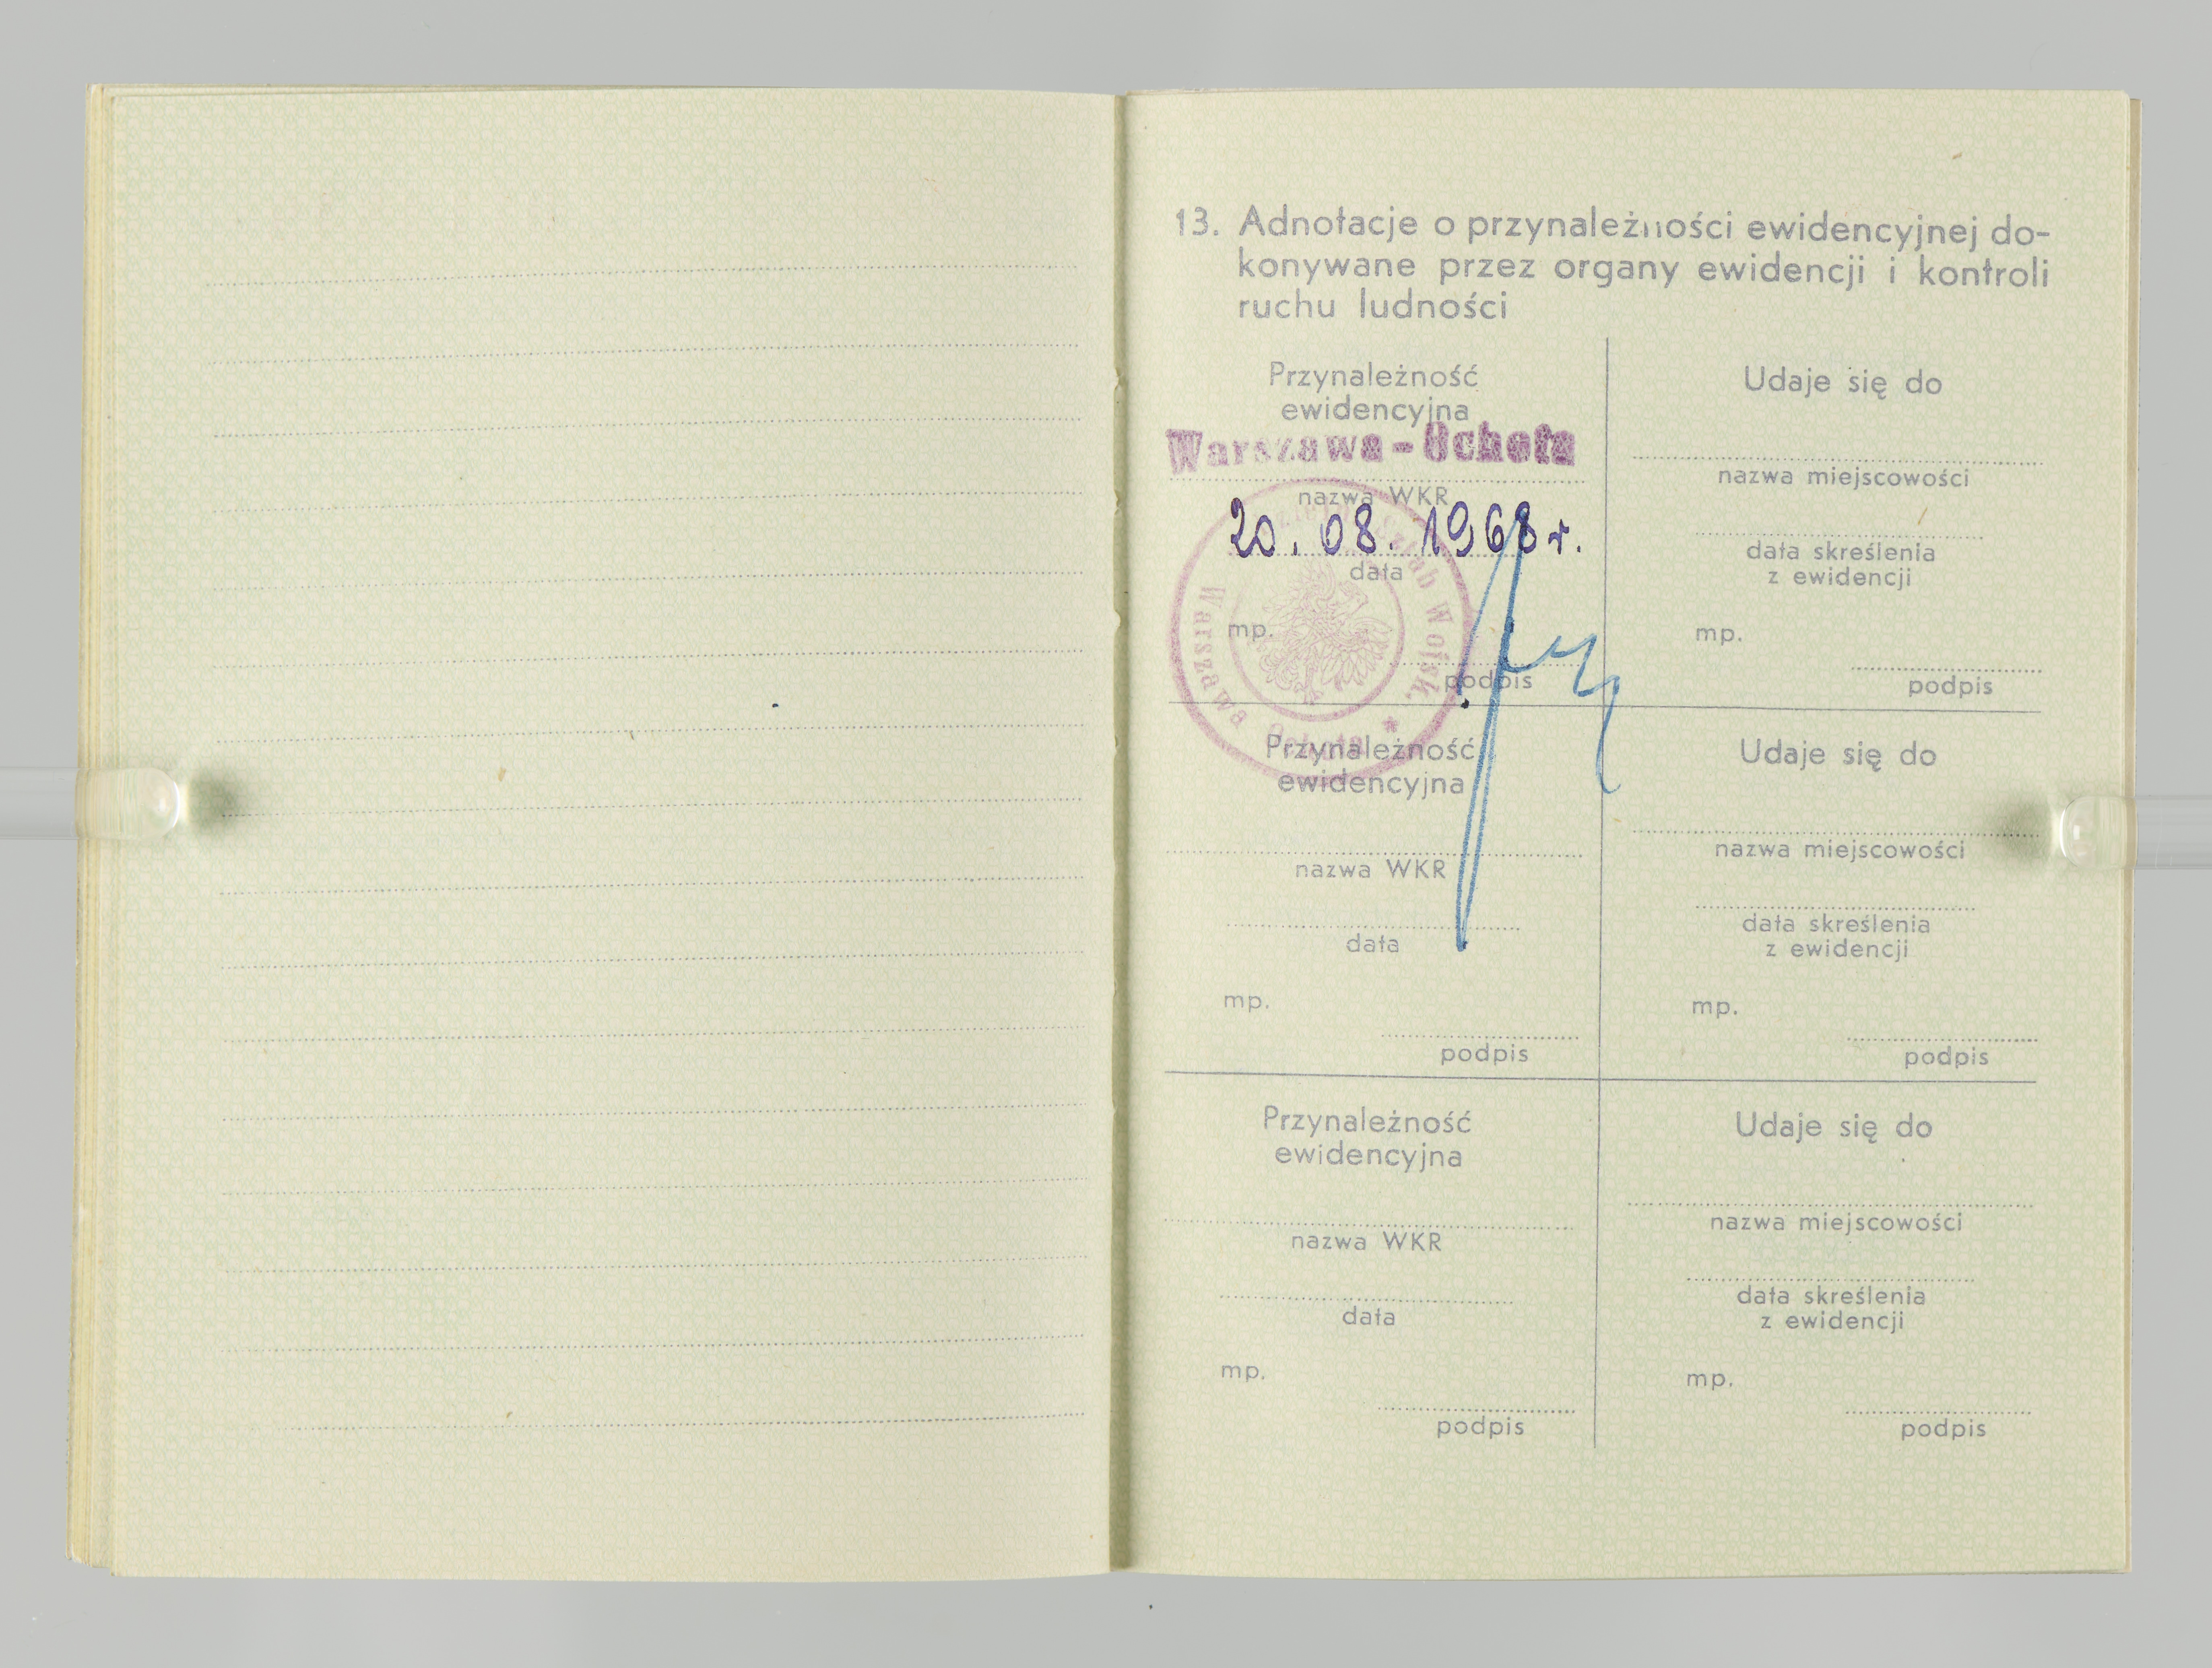 13. Adnotacje o przynależności ewidencyjnej do-
konywane przez organy ewidencji i kontroli
ruchu ludności
Przynależność
ewidencyjna
Warszawa-Ochota
nazwa WKR
20. 08. 1968 r.
data
mp.
podpis
Sztab Wojsk. * Warszawa Ochota
Udaje się do
nazwa miejscowości
data skreślenia
z ewidencji
mp.
podpis
Przynależność
ewidencyjna
nazwa WKR
data
mp.
podpis
Udaje się do
nazwa miejscowości
data skreślenia
z ewidencji
mp.
podpis
Przynależność
ewidencyjna
nazwa WKR
data
mp.
podpis
Udaje się do
nazwa miejscowości
data skreślenia
z ewidencji
mp.
podpis